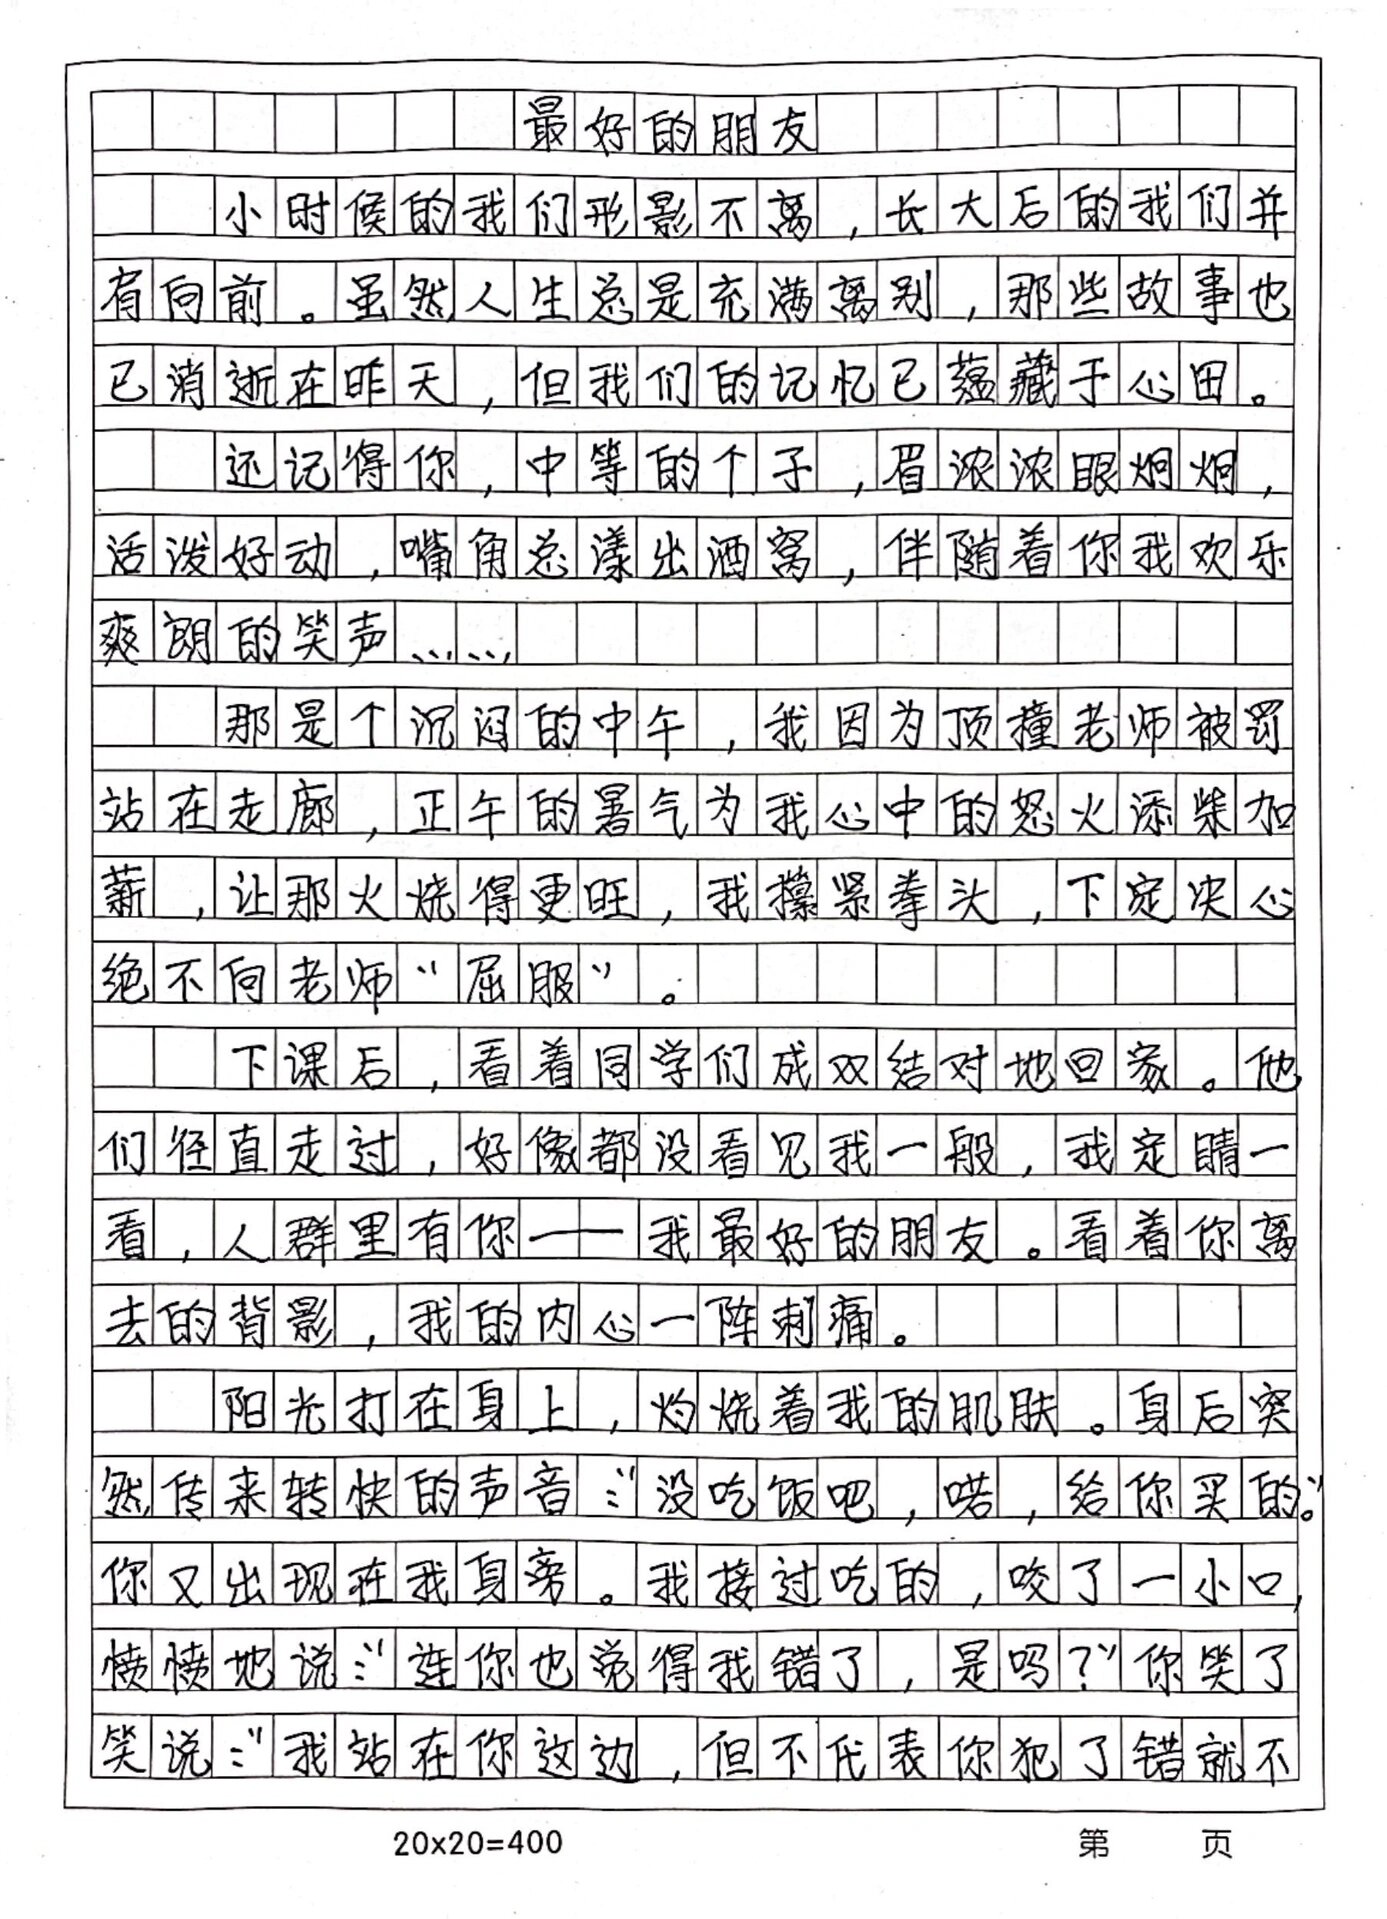 最好的朋友
小时候的我们形影不离，长大后的我们并
肩向前。虽然人生总是充满离别，那些故事也
已消逝在昨天，但我们的记忆已蕴藏于心田。
还记得你，中等的个子，眉浓浓眼炯炯，
活泼好动，嘴角总漾出酒窝，伴随着你我欢乐
爽朗的笑声……
那是个沉闷的中午，我因为顶撞老师被罚
站在走廊，正午的暑气为我心中的怒火添柴加
薪，让那火烧得更旺，我攥紧拳头，下定决心
绝不向老师“屈服”。
下课后，看着同学们成双结对地回家。他
们径直走过，好像都没看见我一般，我定睛一
看，人群里有你——我最好的朋友。看着你离
去的背影，我的内心一阵刺痛。
阳光打在身上，灼烧着我的肌肤。身后突
然传来轻快的声音：“没吃饭吧，喏，给你买的。”
你又出现在我身旁。我接过吃的，咬了一小口，
愤愤地说：“连你也觉得我错了，是吗？”你笑了
笑说：“我站在你这边，但不代表你犯了错就不
20×20=400
第 页